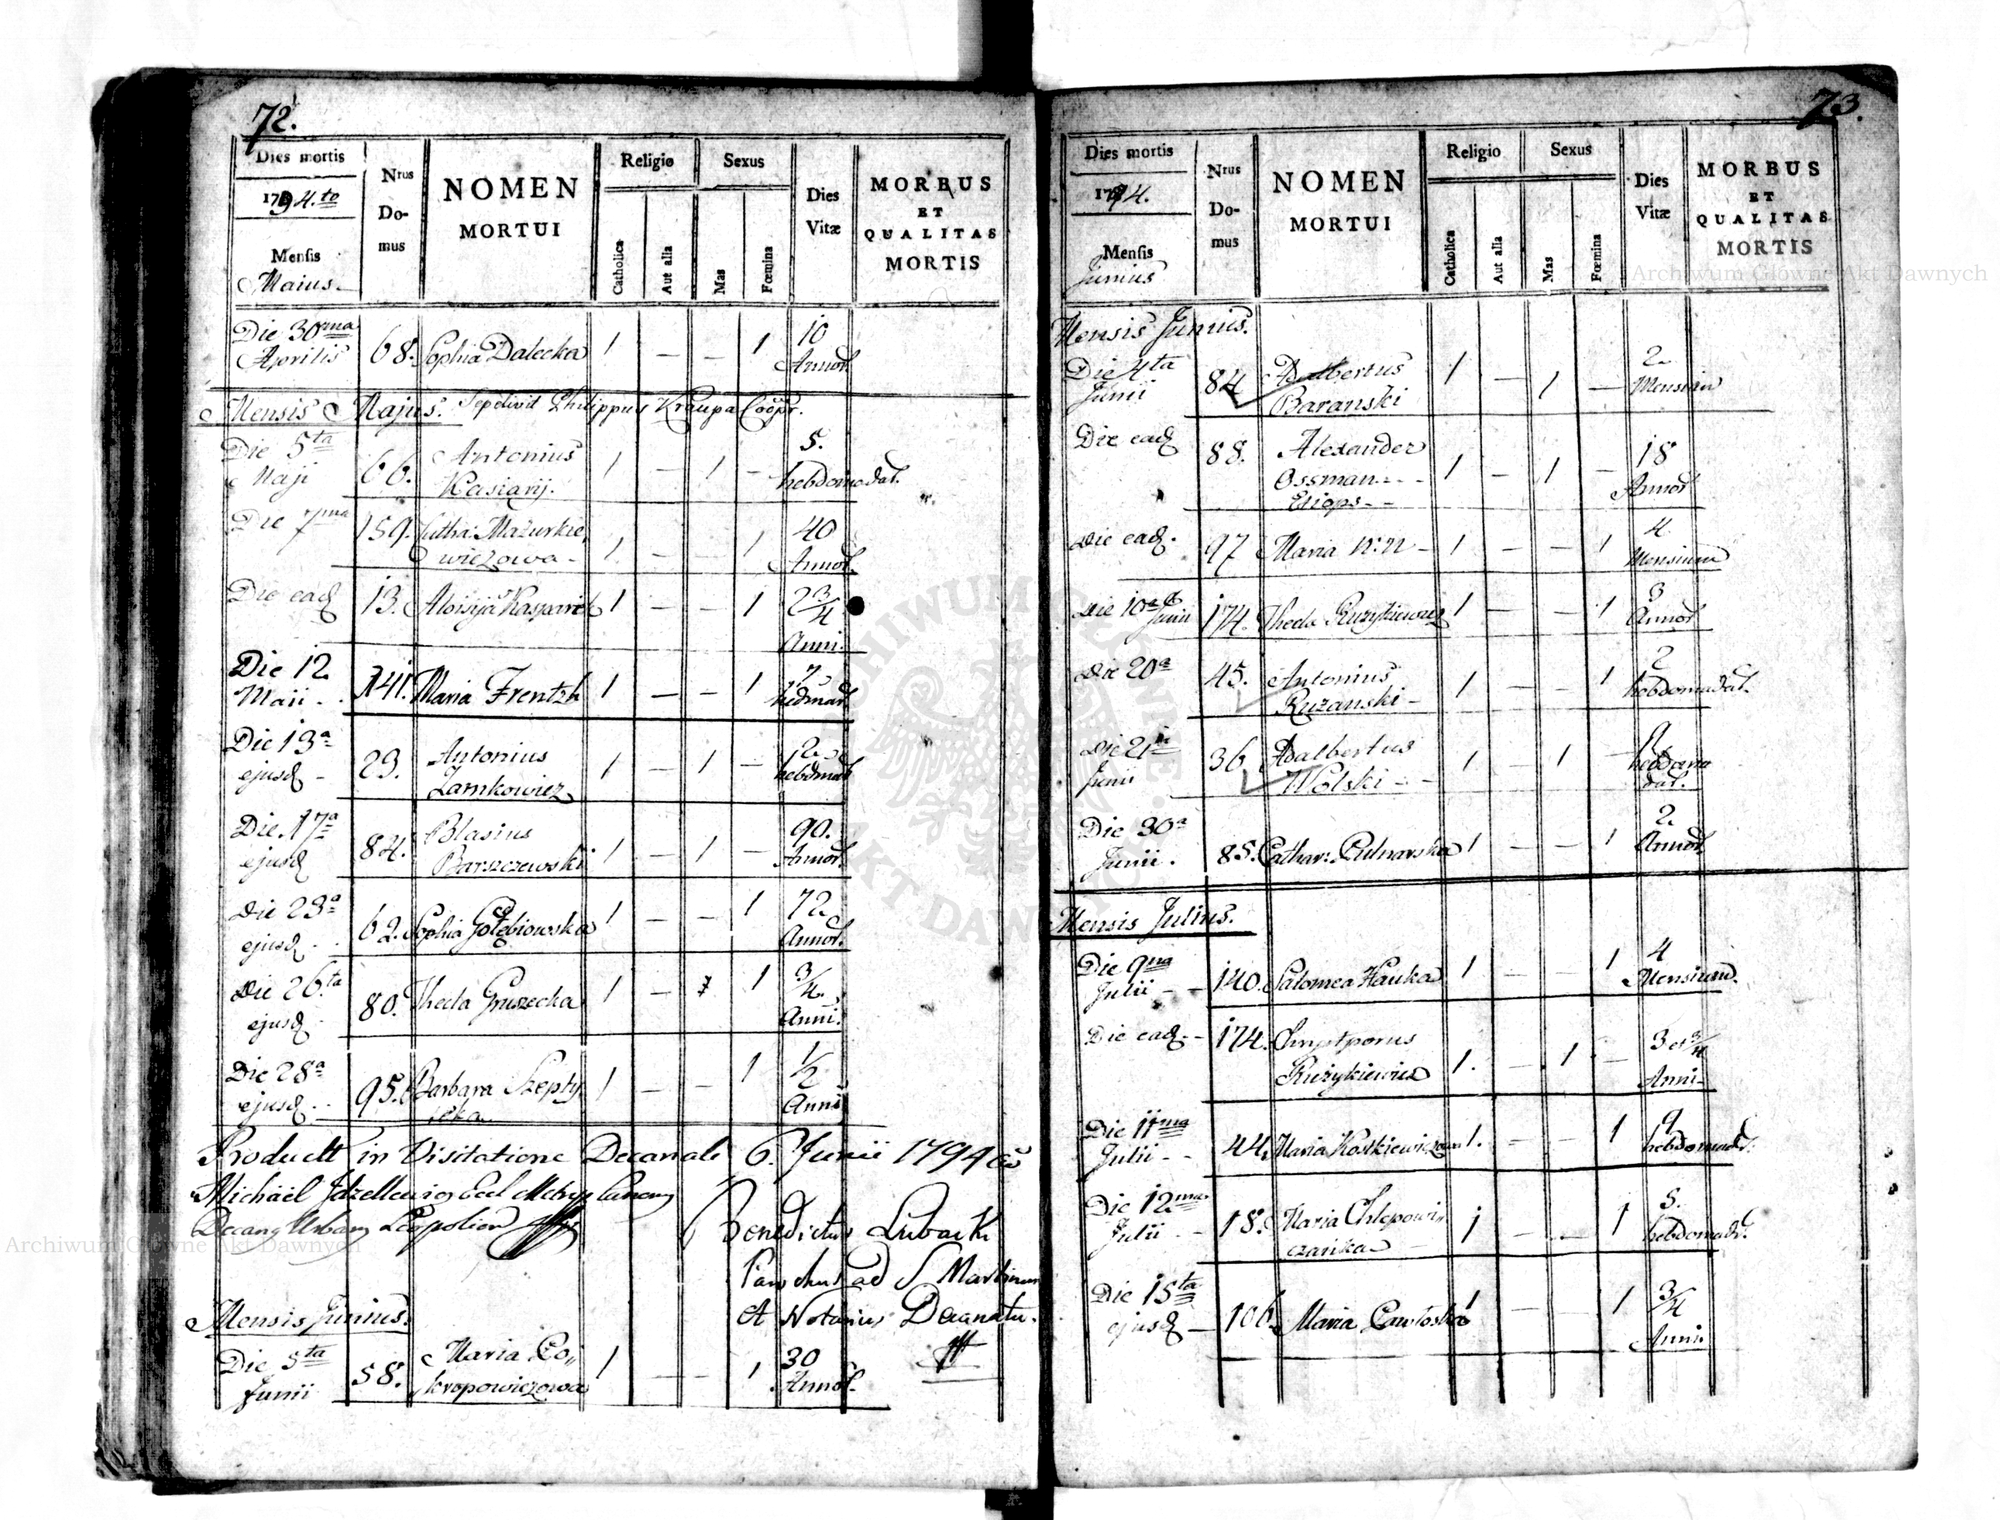 72.
Dies mortis
1794.to
Mensis
Maius
Nrus Do-mus
NOMEN
MORTUI
Religio
Catholica
Aut alia
Sexus
Mas
Fœmina
Dies
Vitæ
MORBUS
ET
QUALITAS
MORTIS
Die 30ma Aprilis 68. Sophia Dalecka 1 — — 1 10 Annor.
Mensis Majus. Sepelivit Philippus Kraupa Coopr.
Die 5ta Maji 66. Antonius 1 — 1 — 5. hebdomadar.
Die 7ma 159. Mazurkie wiczowa 1 — — 1 40 Annor.
Die ead 13. Aloisija 1 — — 1 2 3/4 Anni.
Die 12 Maii 141. Maria Frentzh 1 — — 1 7 hedmad
Die 13a ejusd 23. Antonius Zamkowicz 1 — 1 — 12 hebdmad
Die 17a ejusd 84. Blasius Barszczewski 1 — 1 — 90. Annor.
Die 23a ejusd 62. Sophia Gołębiowska 1 — — 1 72 Annor.
Die 26ta ejusd 80. Thecla Gruszecka 1 — 1 3/4 Anni.
Die 28a ejusd 95. Barbara Szepty cka 1 — — 1 1/2 Anni
in Visitatione Decanali 6. Junii 1794
Michaël
Benedictus
ad S Martinum
et Notarius Decanatu.
Mensis Junius.
Die 5ta Junii 58. Maria 1 — — 1 30 Annor.
73.
Dies mortis
1794.
Mensis
Junius
Nrus Do-mus
NOMEN
MORTUI
Religio
Catholica
Aut alia
Sexus
Mas
Fœmina
Dies
Vitæ
MORBUS
ET
QUALITAS
MORTIS
Mensis Junius.
Die 4ta Junii 84 Adalbertus Baranski 1 — 1 — 2 Mensium
Die ead 88. Alexander Ossman Etiops 1 — 1 — 18 Annor
Die ead. 97 Maria N:N 1 — — 1 4 Mensium
Die 10a Junii 174. Thecla Ruzykiewicz 1 — — 1 3 Annor
Die 20a 45. Antonius Ruzanski 1 — — 1 2 hebdomadar.
Die 21a Junii 36 Adalbertus Wolski 1 — 1 — hebdoma dar.
Die 30a Junii. 85. Cathar: 1 — — 1 2. Annor
Mensis Julius.
Die 9na Julii 140. Salomea Hauka 1 — 1 4 Mensium.
Die ead. 174. Ruzykiewicz 1. — 1 — 3 et 3/4 Anni
Die 11ma Julii 44. Maria Kostkiewiczowa 1. — — 1 9 hebdomad.
Die 12ma Julii 18. Maria Chlepowi czanka 1 — — 1 5. hebdomadr.
Die 15ta ejusd 106. Maria 1 — — 1 3/4 Anni
Archiwum Główne Akt Dawnych
Archiwum Główne Akt Dawnych
ARCHIWUM GŁÓWNE AKT DAWNYCH